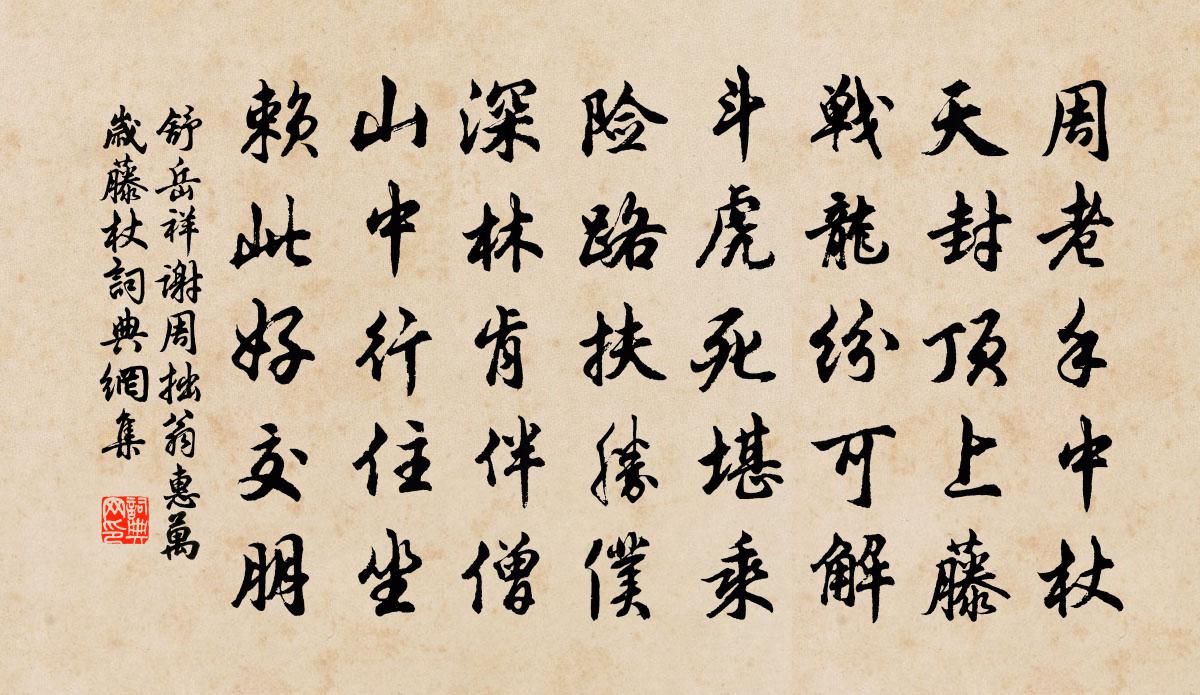 周老手中杖
天封顶上藤
戦龍纷可解
斗虎死堪乘
险路扶勝僕
深林肯伴僧
山中行住坐
赖此好交朋
舒岳祥谢周拙翁惠萬
歲藤杖詞典網集
詞典
网印